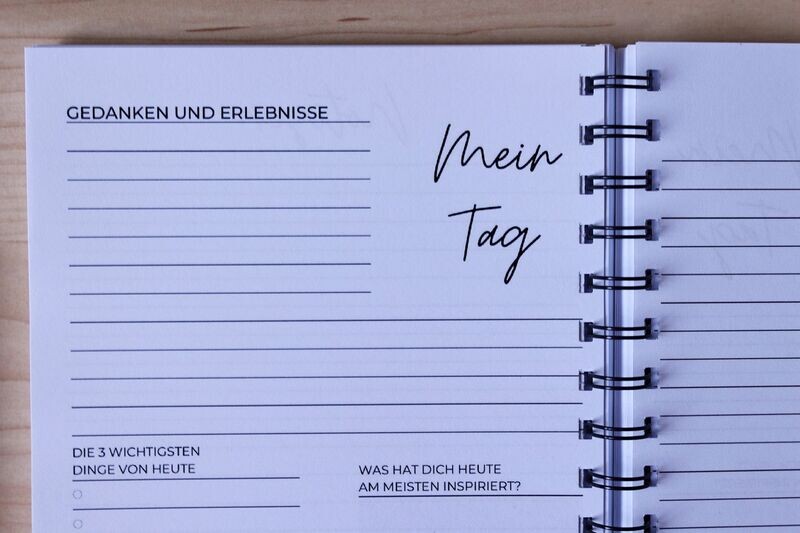 GEDANKEN UND ERLEBNISSE
Mein
Tag
DIE 3 WICHTIGSTEN
DINGE VON HEUTE
WAS HAT DICH HEUTE
AM MEISTEN INSPIRIERT?